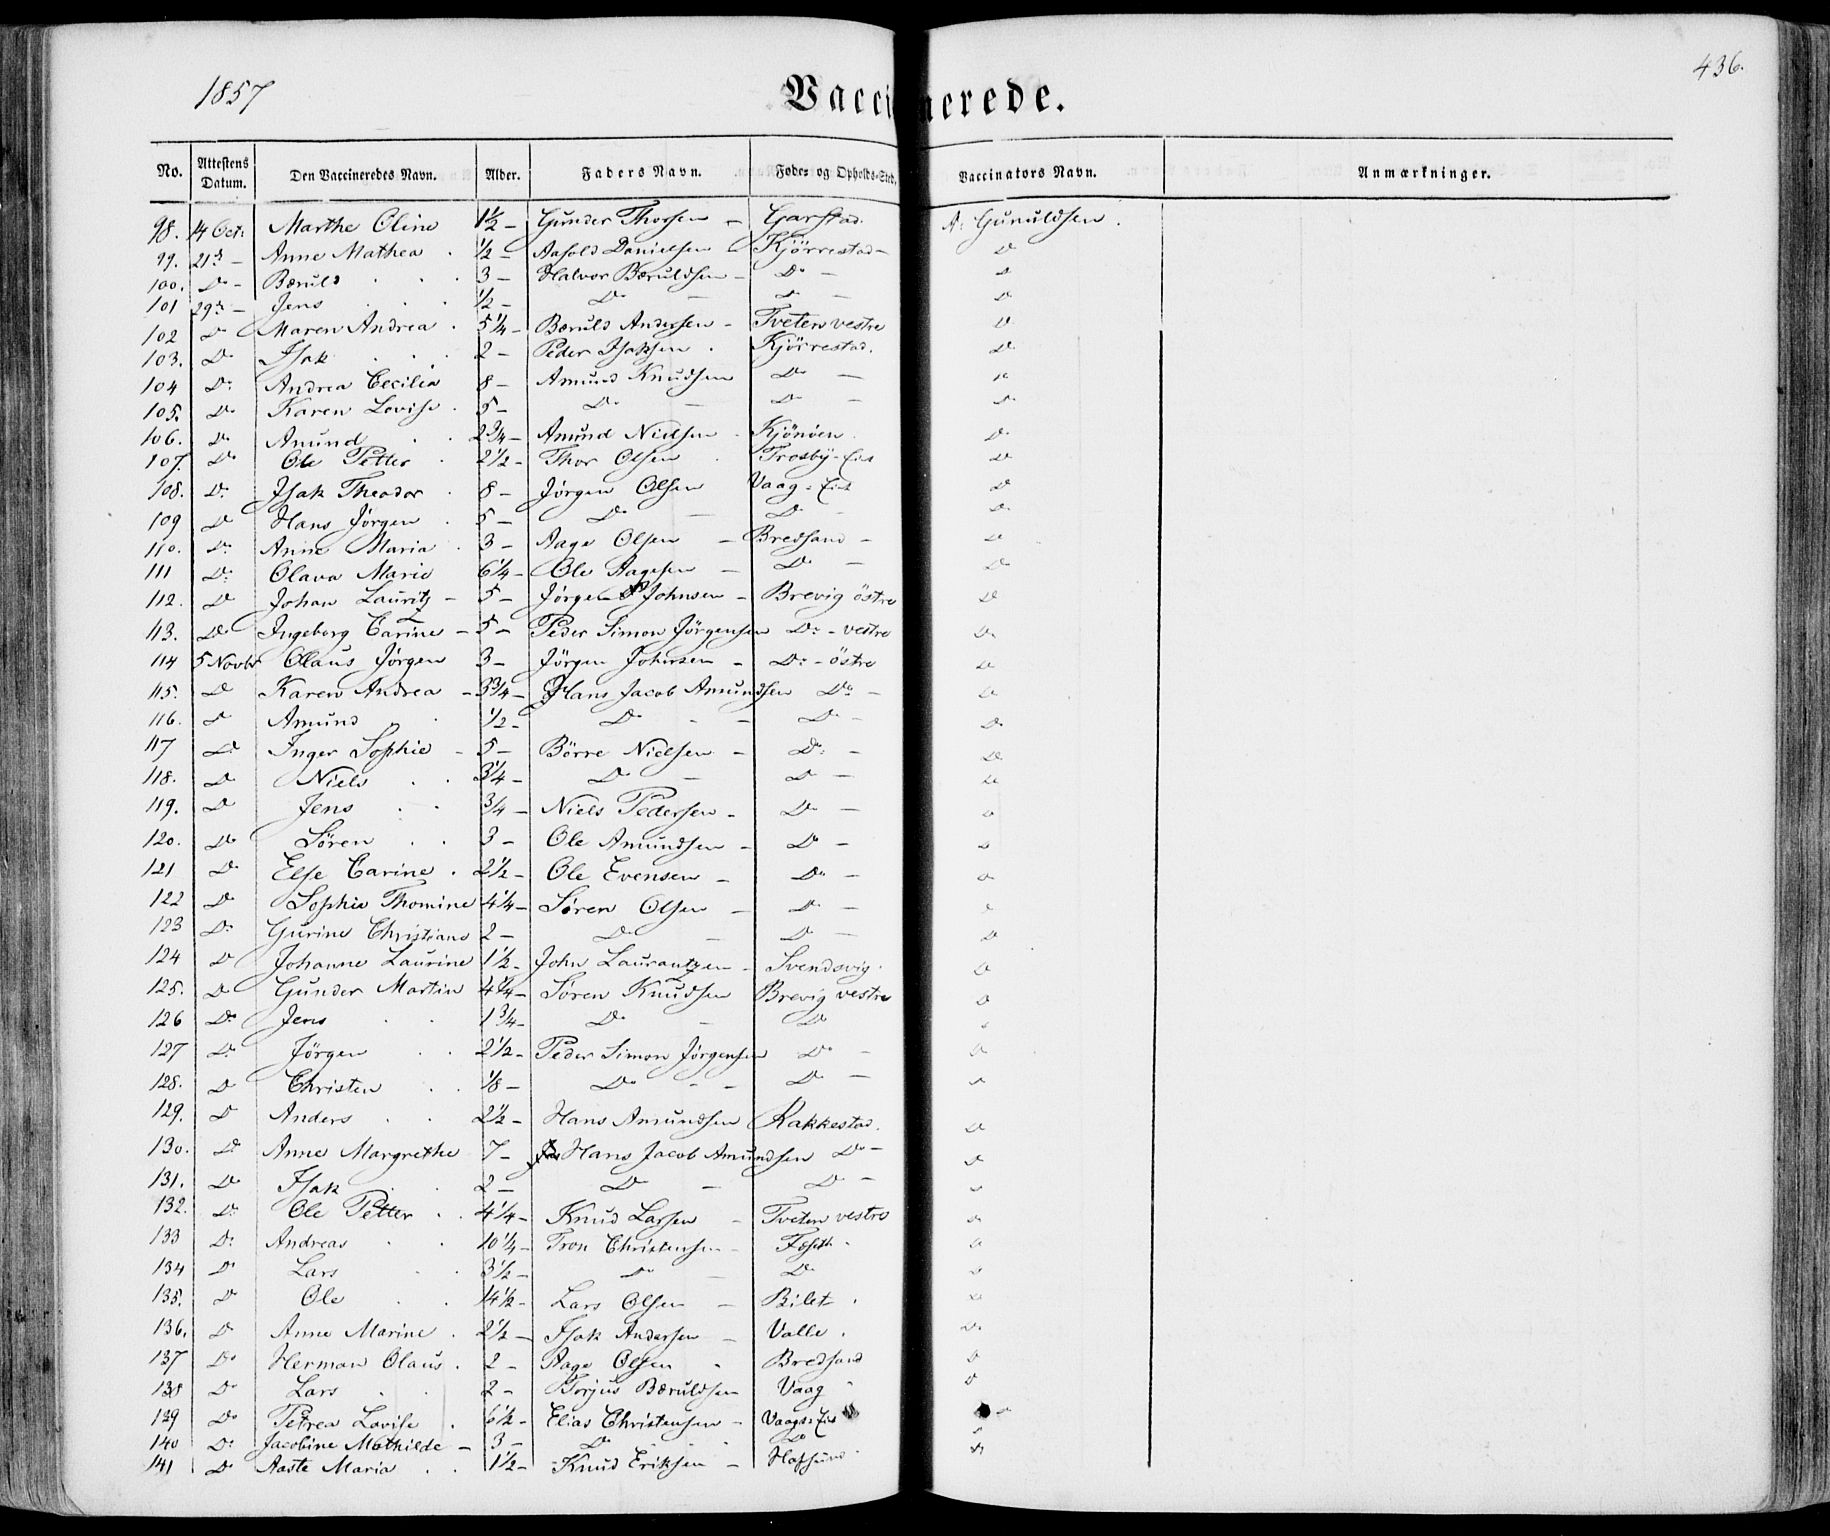 1857
436.
Vaccinerede.
No. Attestens Datum. Den Vaccineredes Navn. Alder. Faders Navn. Føde- og Opholds-Sted. Vaccinators Navn. Anmærkninger.
98. 14 Oct: Marthe Oline 1½ - Gunder Thorsen - Garstad. A: Gunuldsen.
99. 21d - Anne Mathea . ½ - Aasold Danielsen - Kjörrestad - Do
100. Do - Bæruld . . . 3 - Halvor Bæruldsen - Do - Do
101 29d - Jens . . . ½ - Do - Do - Do
102 Do Maren Andrea . 5¼ - Bæruld Andersen - Tveten vestre Do
103. Do Isak . . . 2 - Peder Isaksen . Kjörrestad. Do
104 Do: Andrea Cecilia 8 - Amund Knudsen Do - Do
105. Do Karen Lovise . 5 - Do - Do - Do
106. Do Anund . . 2¾ - Amund Nielsen - Kjönöen. Do
107. Do Ole Petter . 2½ - Thor Olsen . Trosby-Eie Do
108. Do: Isak Theodor . 8 - Jørgen Olsen Vaag-Eie Do
109 Do Hans Jørgen . 5 - Do - Do - Do
110. Do: Anne Maria . 3 - Aage Olsen - Bredsand - Do
111 Do: Olava Marie 6¼ - Ole Aagesen - Do - Do
112. Do Johan Lauritz - 5 - Jørgen Johnsen - Brevig östre Do
113. Do Ingeborg Carine - 5 - Peder Simon Jörgensen Do: - vestre Do
114 5 Novbr Olaus Jørgen 3 - Jörgen Johnsen - Do: - östre Do
115. Do Karen Andrea - 3¾ - Hans Jacob Amundsen Do - Do
116. Do Amund . ½ - Do - - Do - Do
117 Do Inger Sophie - 5 - Börre Nielsen - Do: - Do
118. Do Niels . . 3¼ - Do - Do - Do
119. Do Jens . . ¾ - Niels Pedersen - Do - Do
120. Do Sören . . 3 - Ole Amundsen - Do - Do
121 Do Else Carine . 2½ - Ole Evensen - Do - Do
122 Do Sophie Thomine 4¼ - Sören Olsen - Do - Do
123 Do: Gurine Christiane 2 - Do - Do - Do
124 Do Johanne Laurine 1½ - John Laurantzen - Svendsvig. Do
125. Do Gunder Martin 4¼ - Sören Knudsen Brevig vestre Do
126 Do Jens . . 1¾ - Do - Do Do
127 Do Jörgen . . 2½ - Peder Simon Jörgensen Do - Do
128. Do Christen . . ⅛ - Do - - Do - Do
129. Do Anders . . 2½ - Hans Amundsen Rakkestad. Do
130. Do Anne Margrethe 7 - Hans Jacob Amundsen Do - Do
131. Do Isak . . 2 - Do - Do - Do
132. Do: Ole Petter . . 4¼ - Knud Larsen - Tveten vestre Do
133 Do: Andreas . . 10¼ - Tron Christensen - Foseth. Do
134 Do Lars . . 3½ - Do - Do Do
135. Do Ole . . 14½ - Lars Olsen - Bilet . Do
136. Do Anne Marine . 2½ - Isak Andersen - Valle . Do
137 Do Herman Olaus . 2 - Aage Olsen . Bredsand Do
138 Do Lars . . 2 - Torjus Bæruldsen Vaag . Do
139 Do Petrea Lovise . 6½ - Elias Christensen - Vaags-Eie Do
140 Do: Jacobine Mathilde - 3 - Do . . Do Do
141 Do Aaste Maria . . 1½ - Knud Eriksen - Hafsund Do